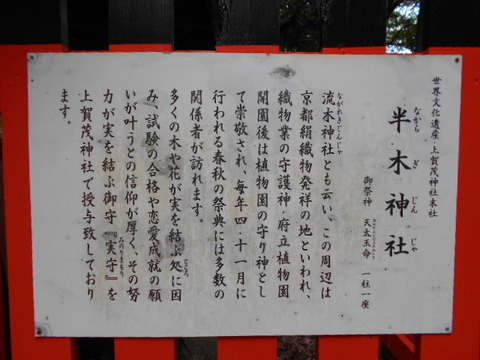 世界文化遺産・上賀茂神社末社
半木神社
ながらぎじんじゃ
御祭神 天太玉命 一柱一座
ながれきじんじゃ
流木神社とも云い、この周辺は
京都絹織物発祥の地といわれ、
織物業の守護神・府立植物園
開園後は植物園の守り神とし
て崇敬され、毎年四・十一月に
行われる春秋の祭典には多数の
関係者が訪れます。
多くの木や花が実を結ぶ処に因
ところ
み、試験の合格や恋愛成就の願
いが叶うとの信仰が厚く、その努
力が実を結ぶ御守『実守』を
みのりまもり
上賀茂神社で授与致しており
ます。